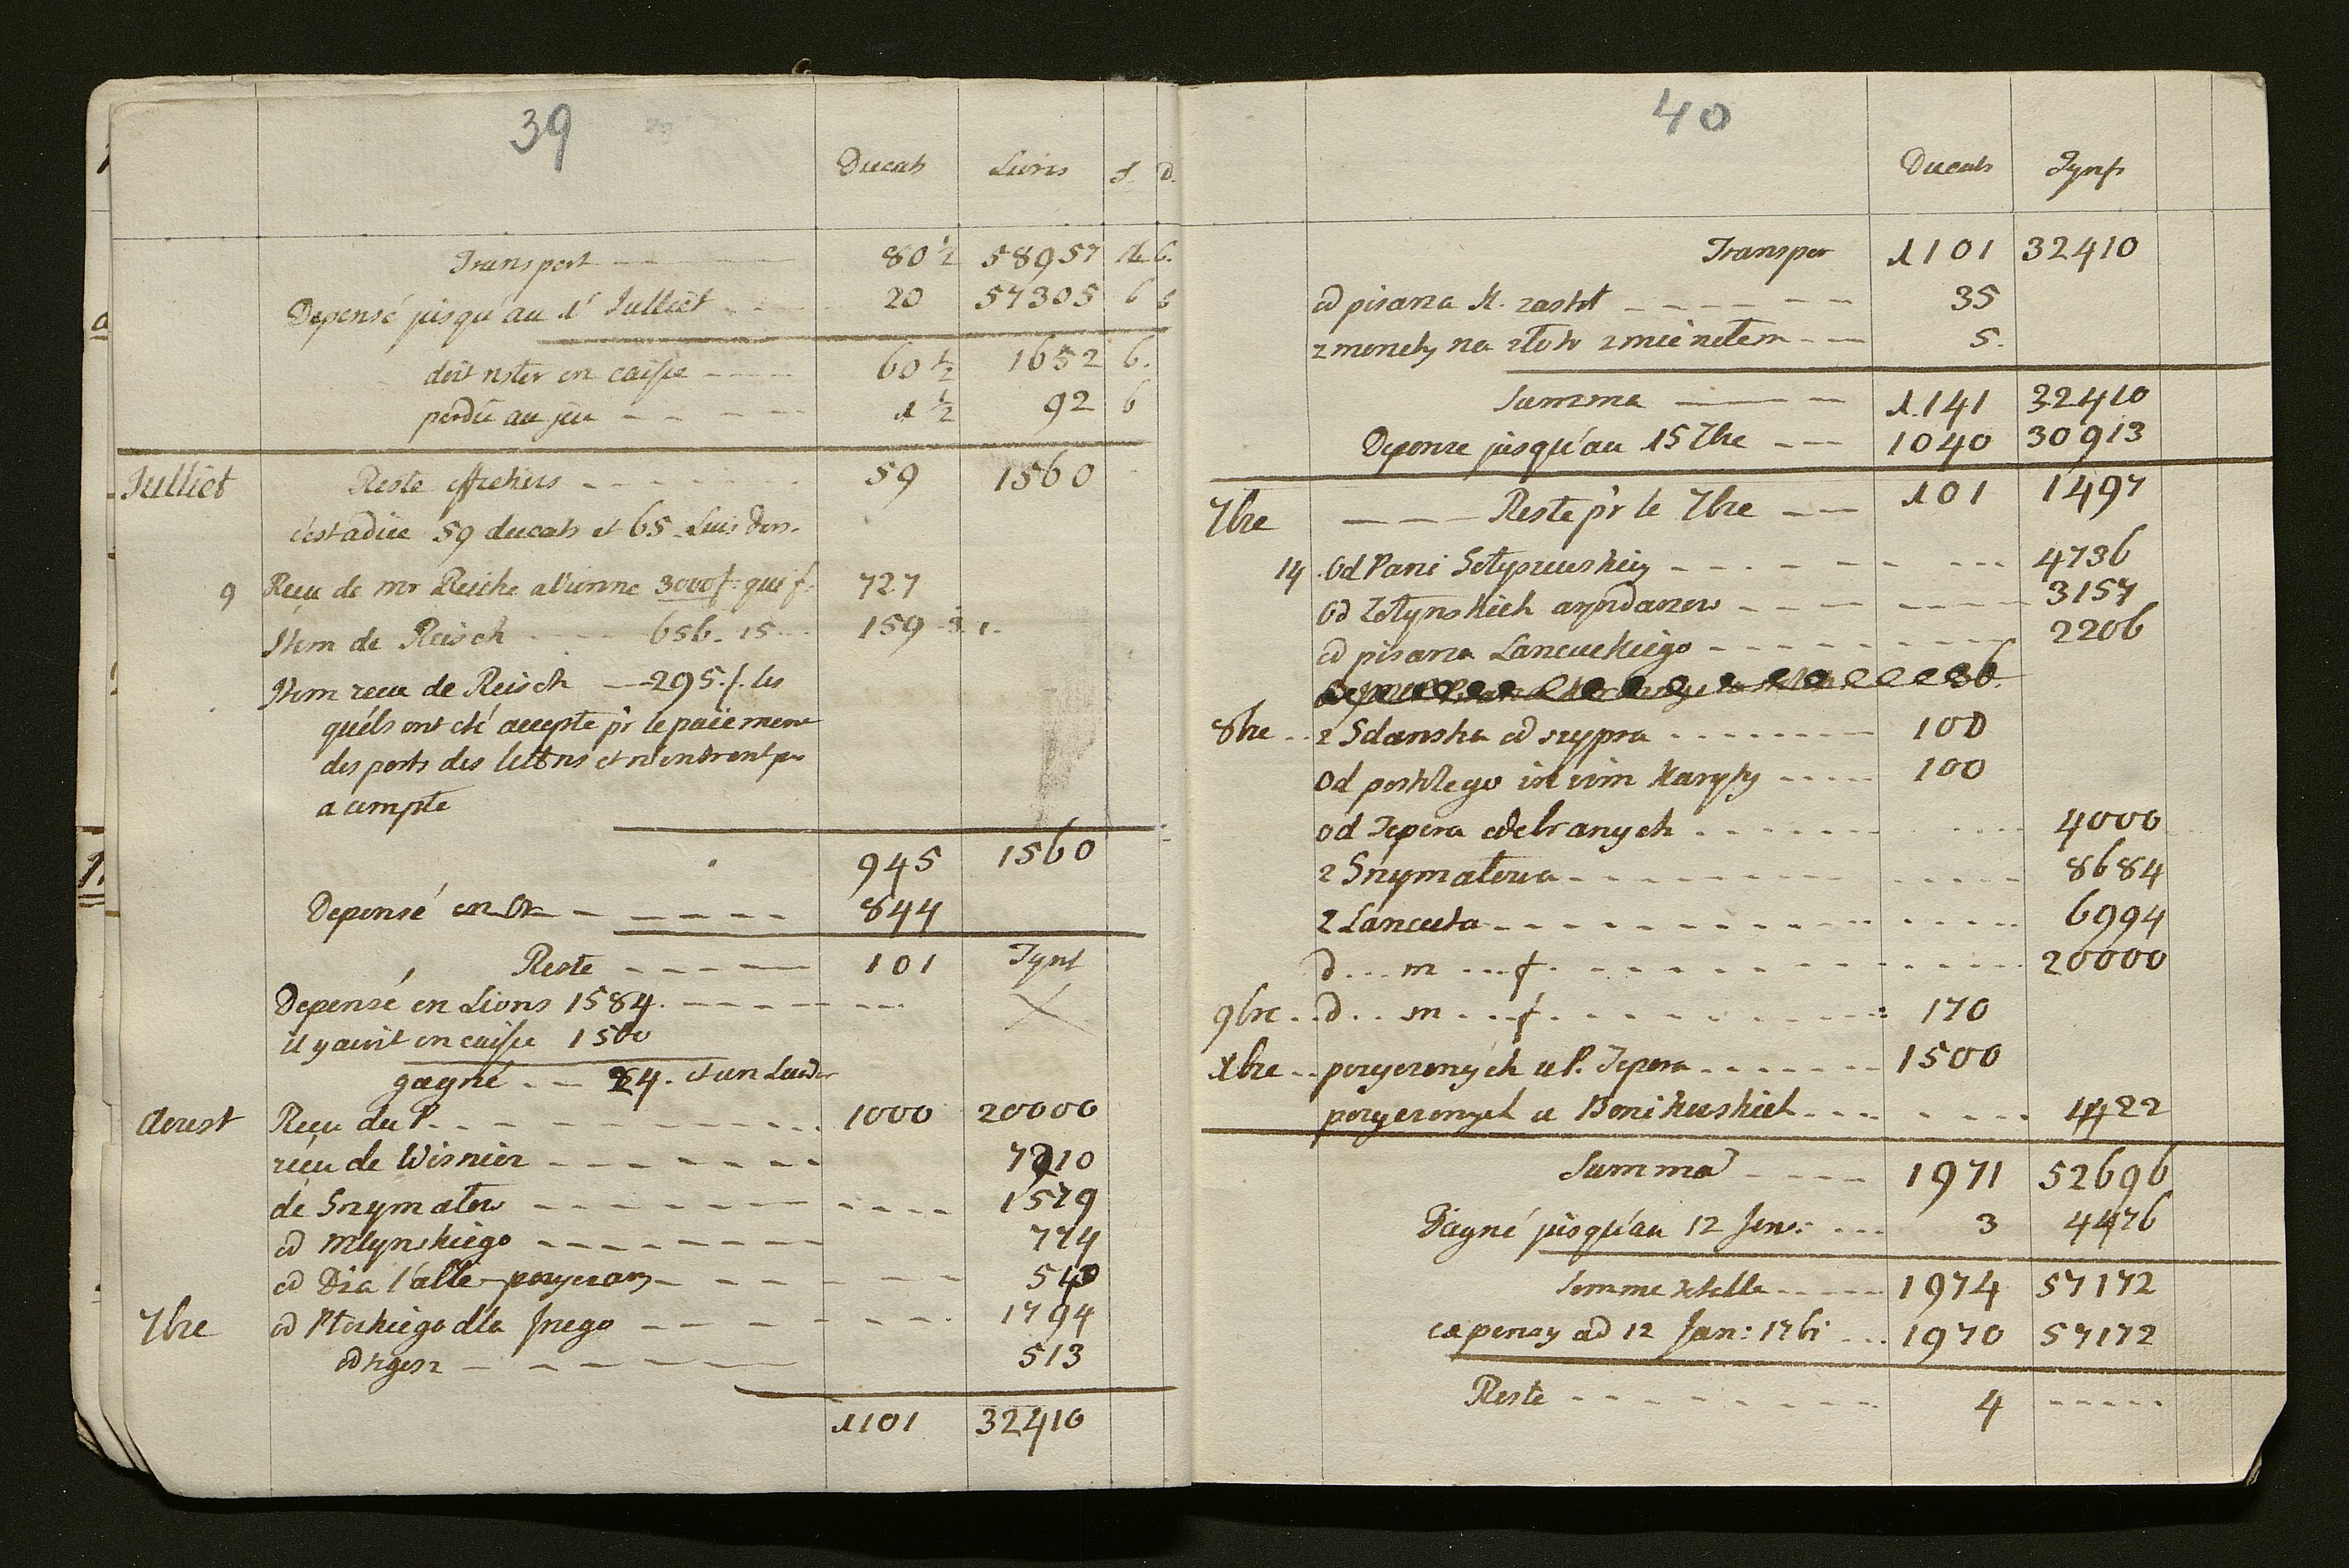 39
Ducats Livres S. D.
Transport 80 1/2 58957 12 6.
Depensé jusqu'au 1' Julliet 20 57305 6 6
doit rester en caisse 60 1/2 1652 6.
perdu au jeu 1 1/2 92 6
Julliet Reste effectives 59 1560
c'est a dire 59 ducats et 65 Luis dors.
9 Reçu de mr Reiche a Vienne 3000 f. qui f. 727
Item de Reisch 656. 15 159
Item reçu de Reisch 295. f. les
quels ont eté accepté p'r le païement
des ports des lettres et n'entrent pas
a compte
945 1560
Depensé en Or 844
Reste 101 Tynf
Depensé en Livres 1584.
il y avoit en caisse 1500
gagné 84. et un Luidor
Aoust Reçu du P. 1000 20000
réçu de Wisnier 7210
de Szymatow 1579
od Mlynskiego 774
od Dzia pozyczany 540
7bre od Ptockiego dla Jnego 1794
513
1101 32410
40
Ducats Tynfs
Transpor 1101 32410
od pisarza K. zastt 35
z monety na złoto zmieniełem 5.
Summa 1141 32410
Deponze jusqu'au 15 7bre 1040 30913
7bre Reste p'r le 7bre 101 1497
14 Od Pani Sołyszewskiey 4736
Od Zołynskich arendarzow 3157
od pisarza Lancuckiego 2206
36
8bre z Gdanska od szypra 100
Od poszłego karyty 100
od Tepera odebranych 4000
z Szymatowa 8684
z Lancuta 6994
d m f 20000
9bre d m f 170
xbre pozyczonych u P. Tepera 1500
pozyczonych u Bonikuskich 1422
Summa 1971 52696
Gagné jusqu'au 12 Jen: 3 4476
Somme totalle 1974 57172
expensy ad 12 Jan: 1761 1970 57172
Reste 4